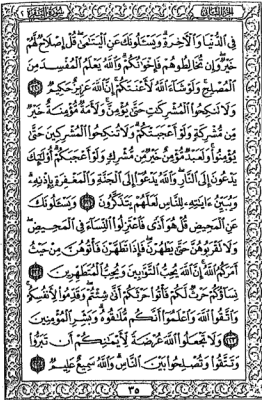 فِى ٱلدُّنْيَا وَٱلْءَاخِرَةِ وَيَسْـَٔلُونَكَ عَنِ ٱلْيَتَٰمَىٰ قُلْ إِصْلَاحٌ لَّهُمْ
خَيْرٌ وَإِن تُخَالِطُوهُمْ فَإِخْوَٰنُكُمْ وَٱللَّهُ يَعْلَمُ ٱلْمُفْسِدَ مِنَ
ٱلْمُصْلِحِ وَلَوْ شَآءَ ٱللَّهُ لَأَعْنَتَكُمْ إِنَّ ٱللَّهَ عَزِيزٌ حَكِيمٌ ٢٢٠
وَلَا تَنكِحُوا۟ ٱلْمُشْرِكَٰتِ حَتَّىٰ يُؤْمِنَّ وَلَأَمَةٌ مُّؤْمِنَةٌ خَيْرٌ
مِّن مُّشْرِكَةٍ وَلَوْ أَعْجَبَتْكُمْ وَلَا تُنكِحُوا۟ ٱلْمُشْرِكِينَ حَتَّىٰ
يُؤْمِنُوا۟ وَلَعَبْدٌ مُّؤْمِنٌ خَيْرٌ مِّن مُّشْرِكٍ وَلَوْ أَعْجَبَكُمْ أُو۟لَٰٓئِكَ
يَدْعُونَ إِلَى ٱلنَّارِ وَٱللَّهُ يَدْعُوٓا۟ إِلَى ٱلْجَنَّةِ وَٱلْمَغْفِرَةِ بِإِذْنِهِۦ
وَيُبَيِّنُ ءَايَٰتِهِۦ لِلنَّاسِ لَعَلَّهُمْ يَتَذَكَّرُونَ ٢٢١ وَيَسْـَٔلُونَكَ
عَنِ ٱلْمَحِيضِ قُلْ هُوَ أَذًى فَٱعْتَزِلُوا۟ ٱلنِّسَآءَ فِى ٱلْمَحِيضِ
وَلَا تَقْرَبُوهُنَّ حَتَّىٰ يَطْهُرْنَ فَإِذَا تَطَهَّرْنَ فَأْتُوهُنَّ مِنْ حَيْثُ
أَمَرَكُمُ ٱللَّهُ إِنَّ ٱللَّهَ يُحِبُّ ٱلتَّوَّٰبِينَ وَيُحِبُّ ٱلْمُتَطَهِّرِينَ ٢٢٢
نِسَآؤُكُمْ حَرْثٌ لَّكُمْ فَأْتُوا۟ حَرْثَكُمْ أَنَّىٰ شِئْتُمْ وَقَدِّمُوا۟ لِأَنفُسِكُمْ
وَٱتَّقُوا۟ ٱللَّهَ وَٱعْلَمُوٓا۟ أَنَّكُم مُّلَٰقُوهُ وَبَشِّرِ ٱلْمُؤْمِنِينَ
٢٢٣ وَلَا تَجْعَلُوا۟ ٱللَّهَ عُرْضَةً لِّأَيْمَٰنِكُمْ أَن تَبَرُّوا۟
وَتَتَّقُوا۟ وَتُصْلِحُوا۟ بَيْنَ ٱلنَّاسِ وَٱللَّهُ سَمِيعٌ عَلِيمٌ ٢٢٤
٣٥